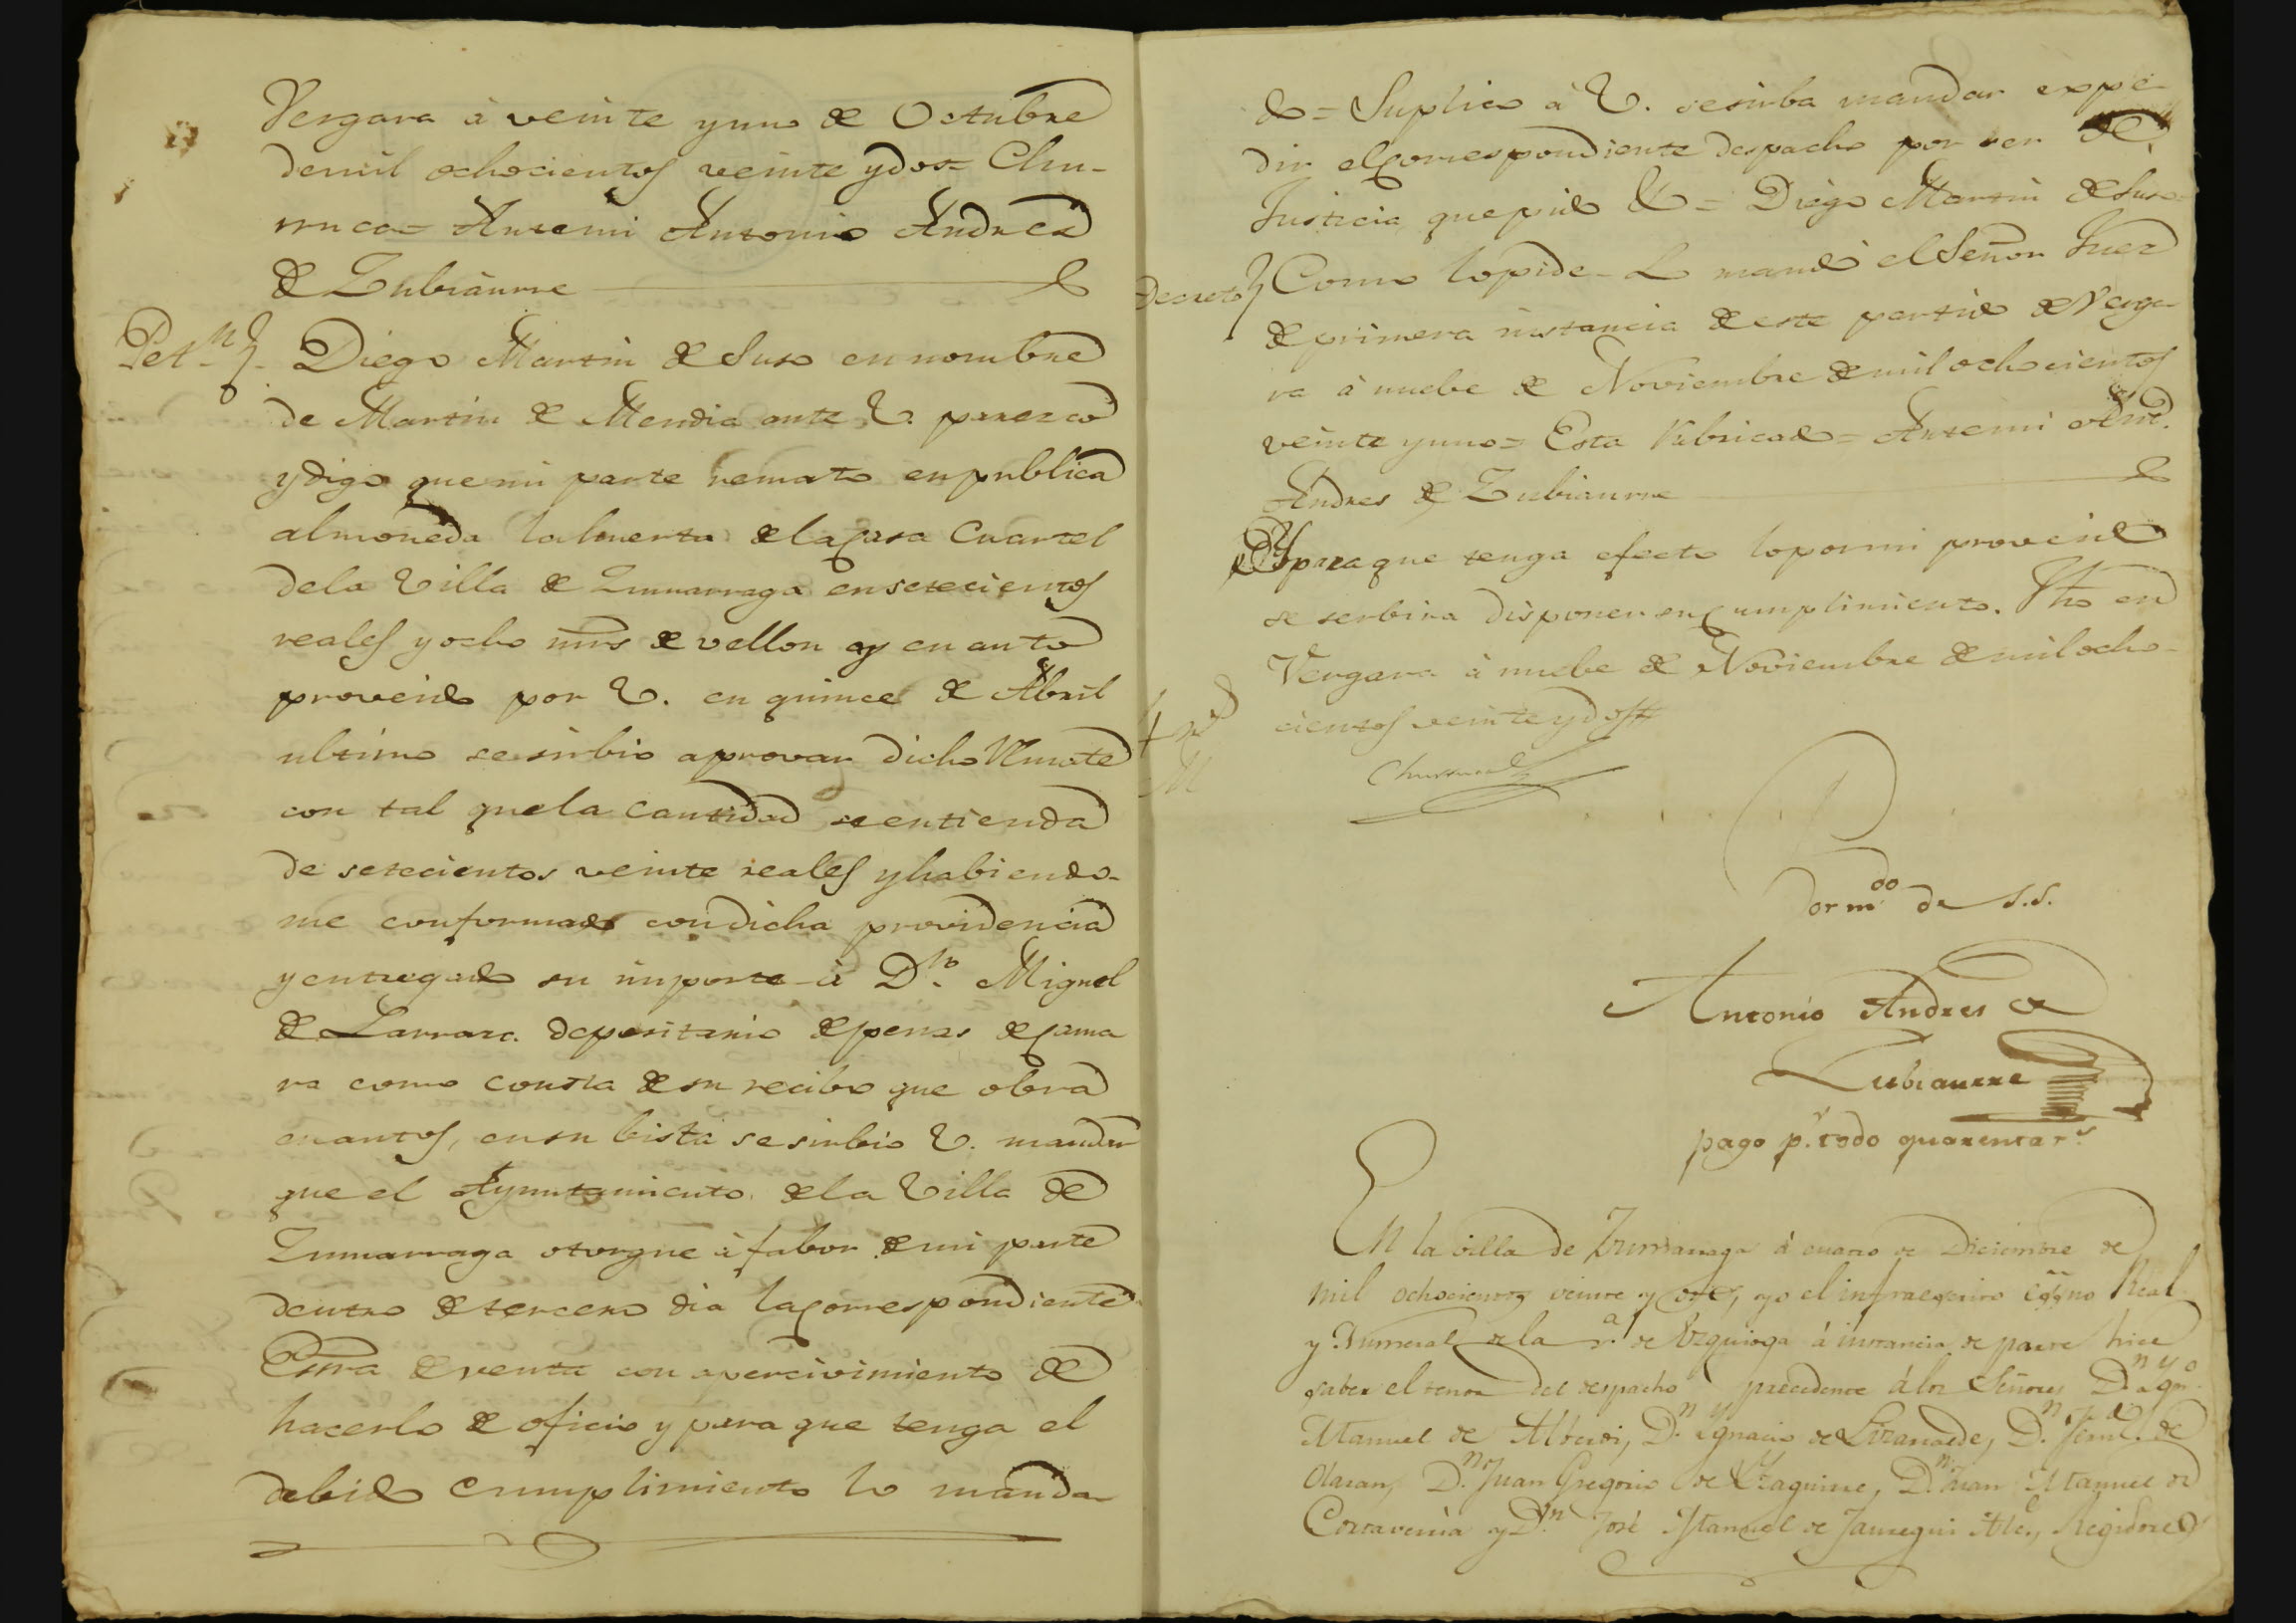 Vergara à veinte y uno de Octubre
de mil ochocientos veinte y dos= Chu-
rruca= Antemi Antonio Andres
de Zubiaurre
Pet.n Diego Martin de Suso en nombre
de Martin de Mendia ante V. parezco
y digo que mi parte remato en publica
almoneda la huerta de la Casa Cuartel
de la Villa de Zumarraga en setecientos
reales y ocho mrs de vellon y en auto
proveido por V. en quince de Abril
ultimo se sirbio aprovar dicho Rmate
con tal que la Cantidad se entienda
de setecientos veinte reales y habiendo-
me conformado con dicha providencia
y entregado su importe à D.n Miguel
de Larraza depositario de penas de Cama
ra como consta de su recibo que obra
en autos, en su bista se sirbio V. mandar
que el Ayuntamiento de la Villa de
Zumarraga otorgue à fabor de mi parte
dentro de tercero dia la correspondiente
Essra de venta con apercivimiento de
hacerlo de oficio y para que tenga el
debido Cumplimiento lo manda
do= Suplico à V. se sirba mandar expe-
dir el Correspondiente despacho por ser de
Justicia que pido &= Diego Martin de Suso=
Decreto Como lo pide- Lo mandò el Señor Juez
de primera instancia de este partido de Verga-
ra à nuebe de Noviembre de mil ochocientos
veinte y uno= Esta Rubricado= Antemi Ant.
Andres de Zubiaurre
Y para que tenga efecto lo por mi proveido
se serbira disponer su Cumplimiento. Fho en
Vergara à nuebe de Noviembre de mil ocho-
cientos veinte y dos
Churruca
Por m.do de S.S.
Antonio Andres de
Zubiaurre
pago p.r todo quarenta r.s
En la villa de Zumarraga á cuatro de Diciembre de
mil ochocientos veinte y dos, yo el infraescrito Essno Real
y Numeral de la v.a de Ezquioga á instancia de parte hice
saber el tenor del despacho precedente á los Señores D.n Ygn.o
Manuel de Alberdi, D.n Ygnacio de Lizarralde, D. de
Olaran, D.n Juan Gregorio de Yzaguirre, D.n Juan Manuel de
Cortaverria y D.n José Manuel de Jauregui Alc.e, Regidores